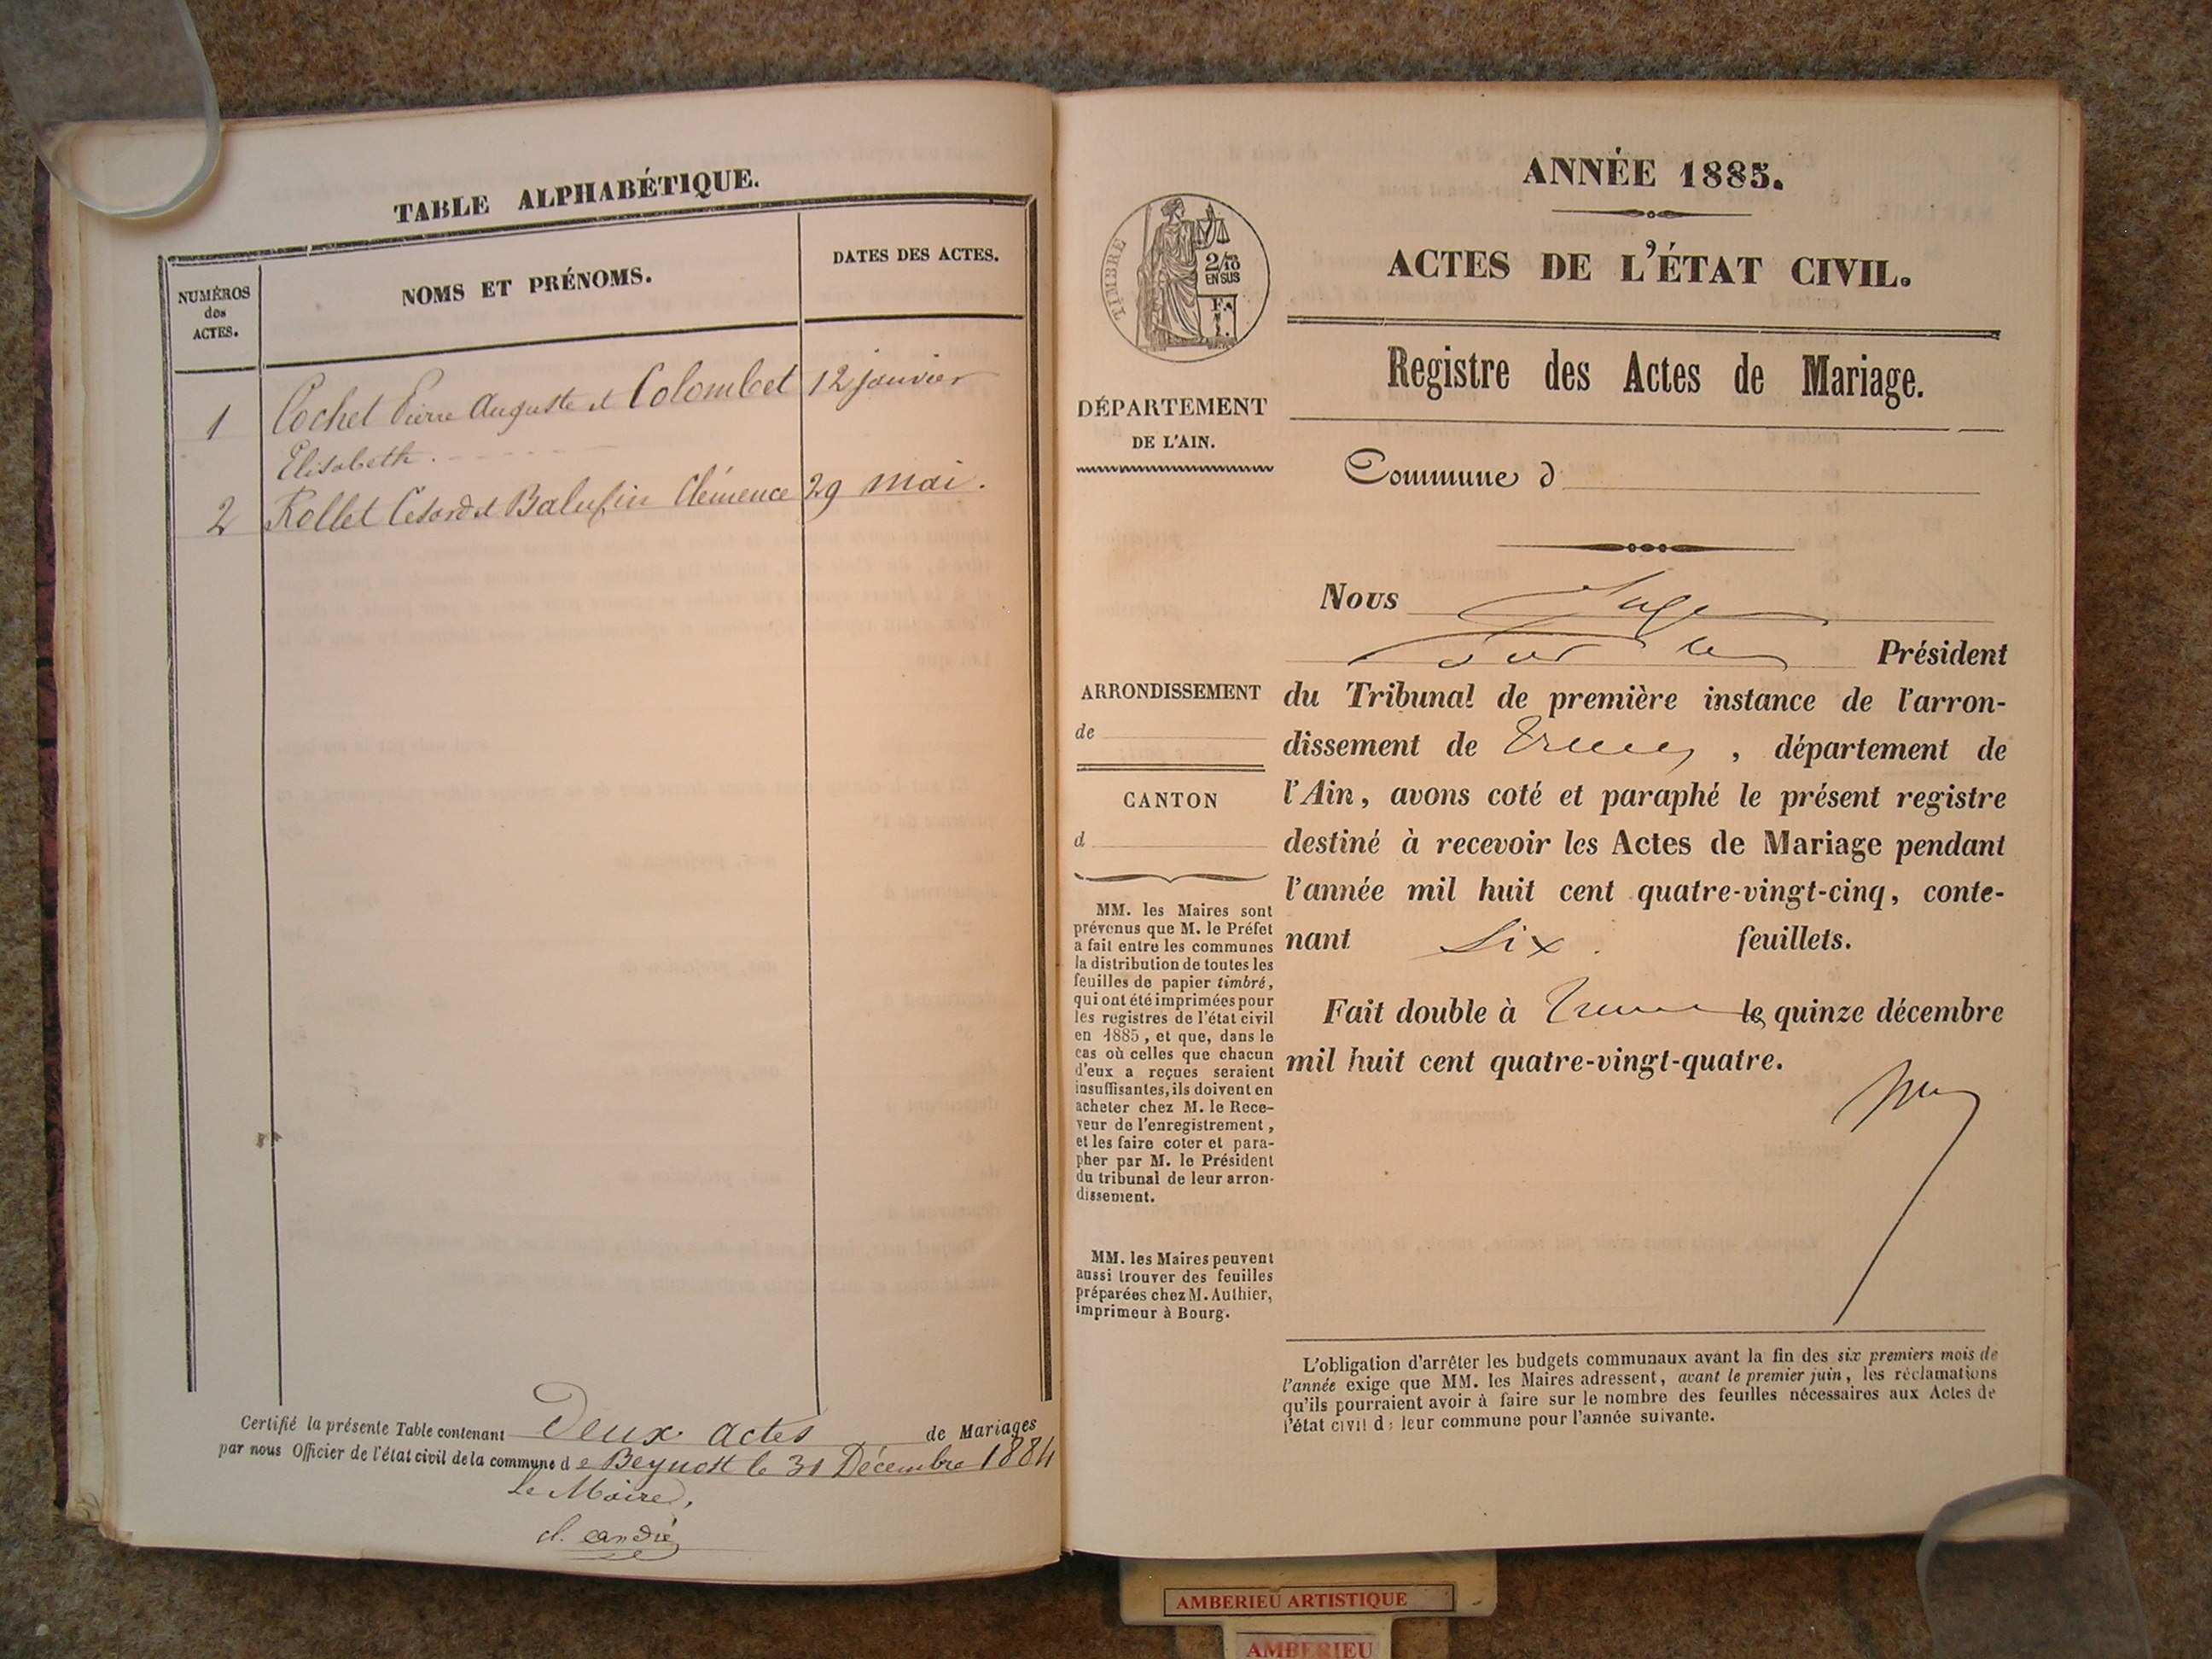 TABLE ALPHABÉTIQUE.
NUMÉROS
des
ACTES.
NOMS ET PRÉNOMS.
DATES DES ACTES.
1 Cochet Pierre Auguste et Colombet 12 janvier
Elisabeth.
2 Rollet Césard et Baluffin Clémence 29 mai.
Certifié la présente Table contenant Deux actes de Mariages
par nous Officier de l'état civil de la commune de Beynost le 31 Décembre 1884
Le Maire,
cl. andré
TIMBRE
2/10
EN SUS
F.
1.
DÉPARTEMENT
DE L'AIN.
ARRONDISSEMENT
de
CANTON
d
MM. les Maires sont
prévenus que M. le Préfet
a fait entre les communes
la distribution de toutes les
feuilles de papier timbré,
qui ont été imprimées pour
les registres de l'état civil
en 1885, et que, dans le
cas où celles que chacun
d'eux a reçues seraient
insuffisantes, ils doivent en
acheter chez M. le Rece-
veur de l'enregistrement,
et les faire coter et para-
pher par M. le Président
du tribunal de leur arron-
dissement.
MM. les Maires peuvent
aussi trouver des feuilles
préparées chez M. Authier,
imprimeur à Bourg.
ANNÉE 1885.
ACTES DE L'ÉTAT CIVIL.
Registre des Actes de Mariage.
Commune d
Nous Juge
Président
du Tribunal de première instance de l'arron-
dissement de Trévoux, département de
l'Ain, avons coté et paraphé le présent registre
destiné à recevoir les Actes de Mariage pendant
l'année mil huit cent quatre-vingt-cinq, conte-
nant Six. feuillets.
Fait double à Trévoux le quinze décembre
mil huit cent quatre-vingt-quatre.
L'obligation d'arrêter les budgets communaux avant la fin des six premiers mois de
l'année exige que MM. les Maires adressent, avant le premier juin, les réclamations
qu'ils pourraient avoir à faire sur le nombre des feuilles nécessaires aux Actes de
l'état civil d: leur commune pour l'année suivante.
AMBERIEU ARTISTIQUE
AMBERIEU